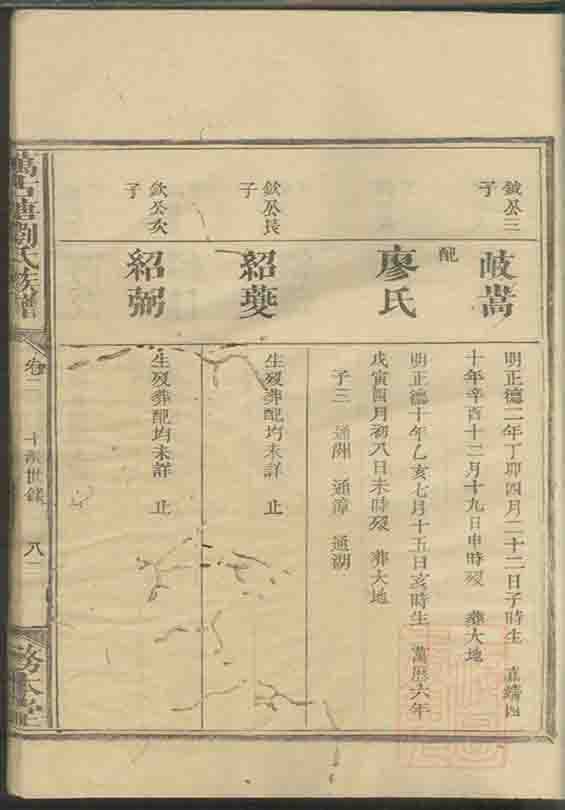 欽公三
子
岐嵩
明正德二年丁卯四月二十二日子時生 嘉靖四
十年辛酉十二月十九日申時歿 葬大地
配
廖氏
明正德十年乙亥七月十五日亥時生 萬歷六年
戊寅四月初八日未時歿 葬大地
子三 通開 通漳 通湖
欽公長
子
紹夔
生歿葬配均未詳 止
欽公次
子
紹弼
生歿葬配均未詳 止
劉氏族譜
卷二
世錄
八二
務本堂